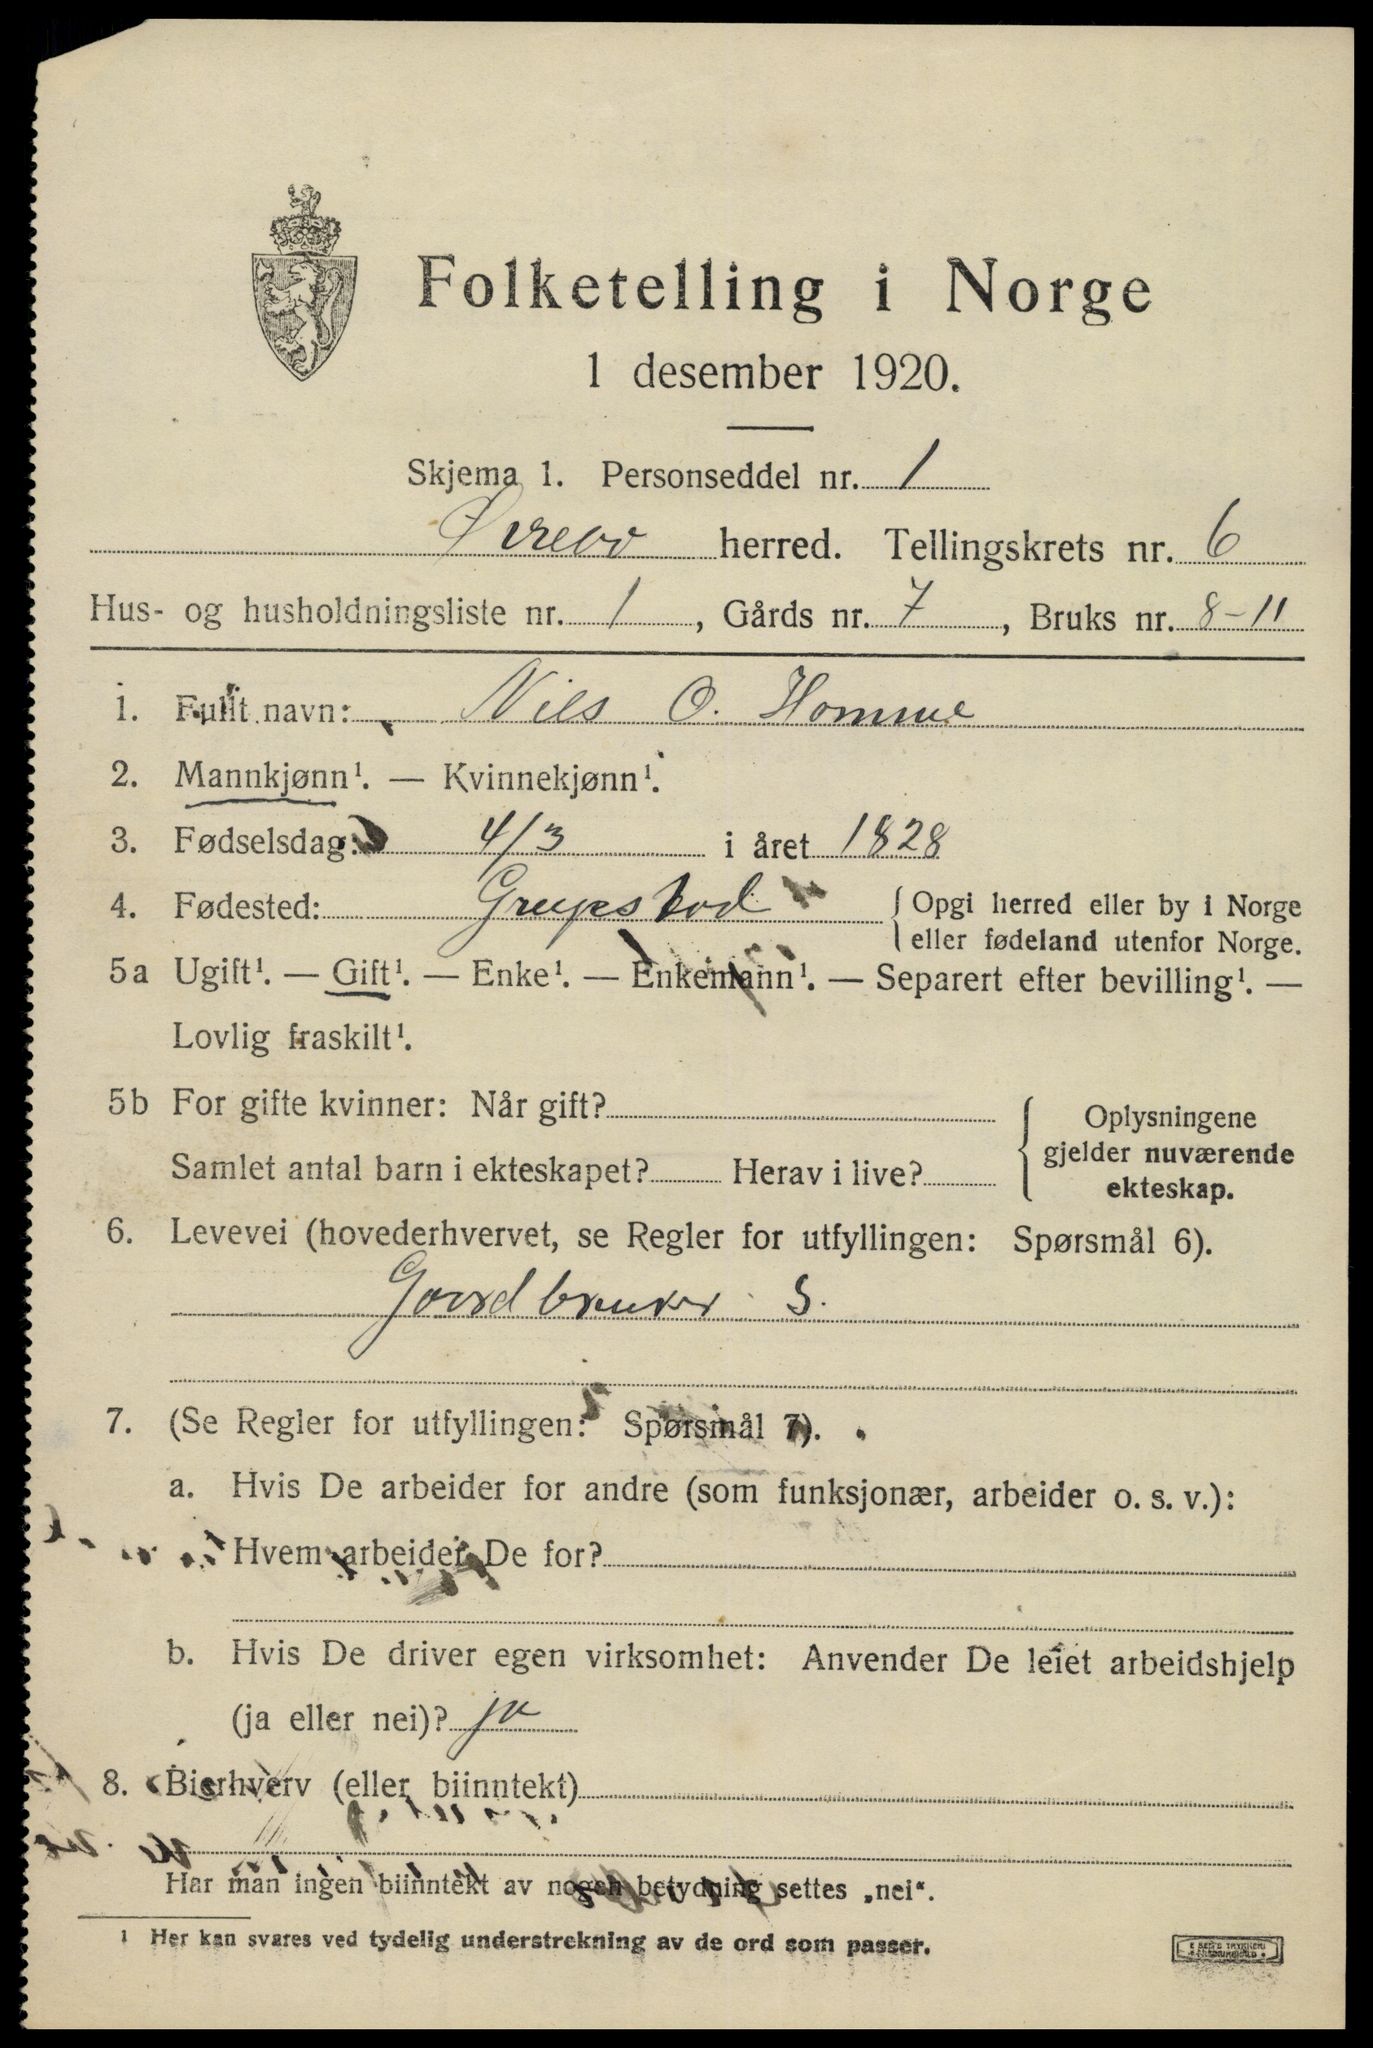 Folketelling i Norge
1 desember 1920.
Skjema 1. Personseddel nr. 1
Øvrebø herred. Tellingskrets nr. 6
Hus- og husholdningsliste nr. 1, Gårds nr. 7, Bruks nr. 8-11
1. Fullt navn: Nils O. Homme
2. Mannkjønn¹. — Kvinnekjønn¹.
3. Fødselsdag: 4/3 i året 1828
4. Fødested: { Opgi herred eller by i Norge
eller fødeland utenfor Norge.
5a Ugift¹. — Gift¹. — Enke¹. — Enkemann¹. — Separert efter bevilling¹. —
Lovlig fraskilt¹.
5b For gifte kvinner: Når gift?
Samlet antal barn i ekteskapet? Herav i live?
{ Oplysningene
gjelder nuværende
ekteskap.
6. Levevei (hovederhvervet, se Regler for utfyllingen: Spørsmål 6).
Gaardbruker S.
7. (Se Regler for utfyllingen: Spørsmål 7).
a. Hvis De arbeider for andre (som funksjonær, arbeider o. s. v.):
Hvem arbeider De for?
b. Hvis De driver egen virksomhet: Anvender De leiet arbeidshjelp
(ja eller nei)? ja
8. Bierhverv (eller biinntekt)
Har man ingen biinntekt av nogen betydning settes „nei“.
¹ Her kan svares ved tydelig understrekning av de ord som passer.